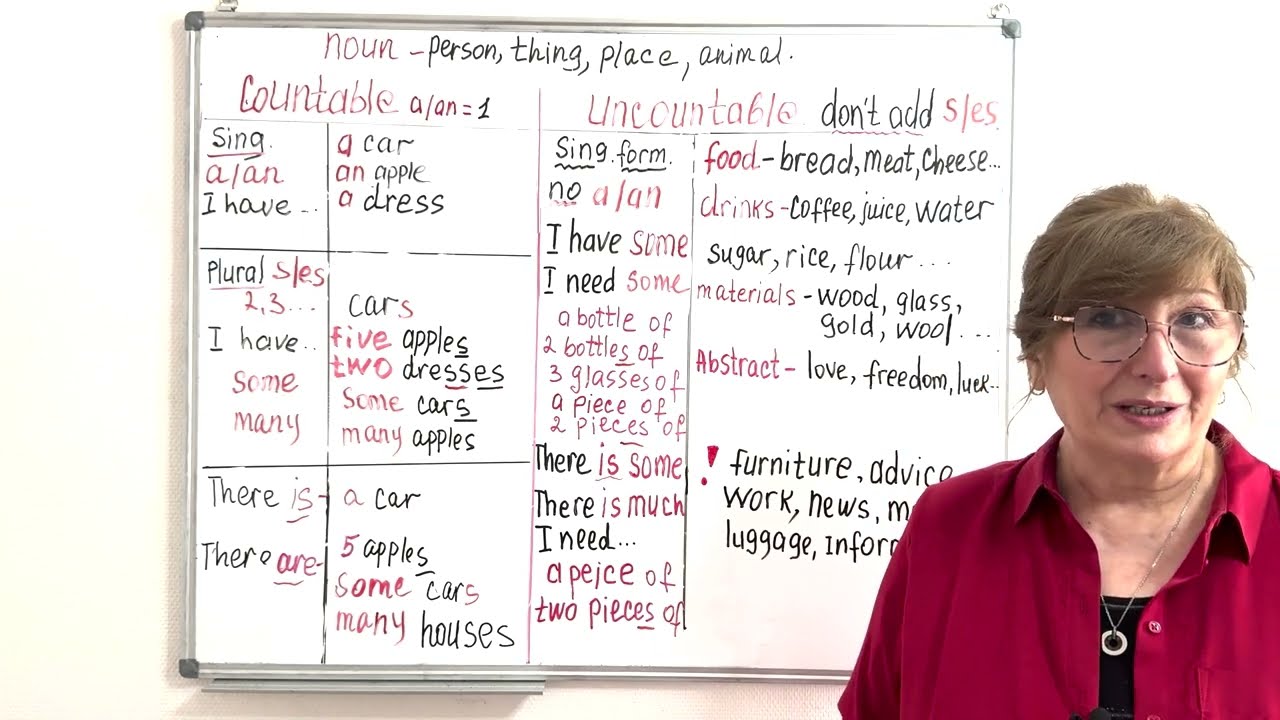 noun - person, thing, place, animal.
Countable a/an = 1
Sing.
a/an
I have ...
a car
an apple
a dress
Plural s/es
2, 3 ...
I have ..
some
many
cars
five apples
two dresses
some cars
many apples
There is - a car
There are -
5 apples
some cars
many houses
Uncountable don't add s/es
Sing. form.
no a/an
I have some
I need some
a bottle of
2 bottles of
3 glasses of
a piece of
2 pieces of
There is some
There is much
I need...
a pejce of
two pieces of
food - bread, meat, cheese...
drinks - coffee, juice, water
sugar, rice, flour ...
materials - wood, glass,
gold, wool ....
Abstract - love, freedom, luck...
! furniture, advice
work, news,
luggage,